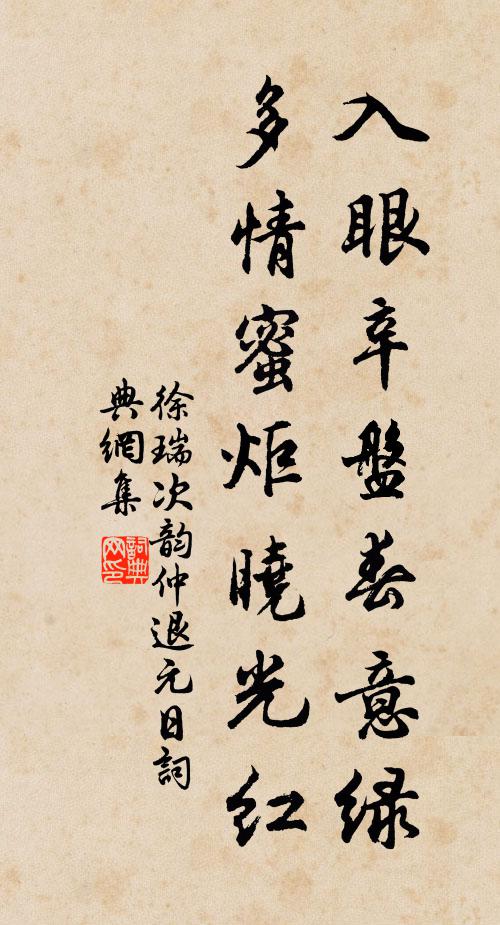 入眼辛盤春意绿
多情蜜炬曉光红
徐瑞次韵仲退元日詞
典網集
詞典網印